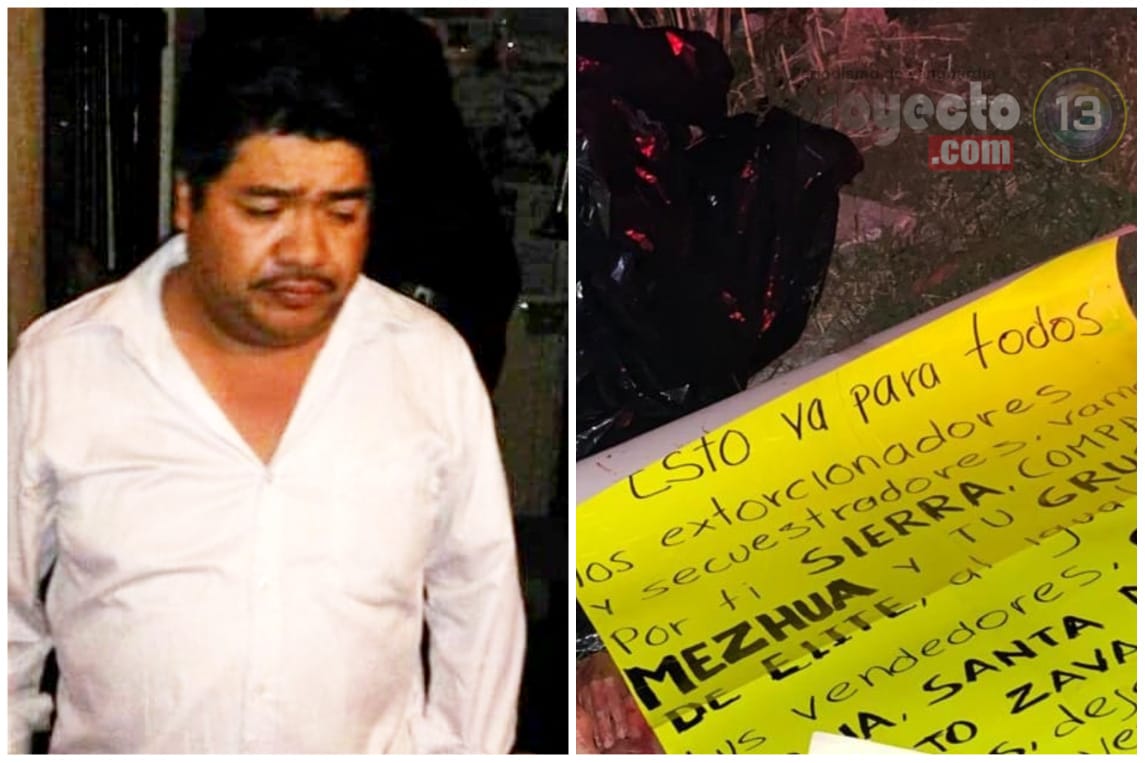 Proyecto
13
.com
Esto va para todos
los extorcionadores
y secuestradores, vam
Por ti SIERRA, COMPA
MEZHUA Y TU GRU
DE ELITE, al igua
tus vendedores,
SANTA
TO ZAVA